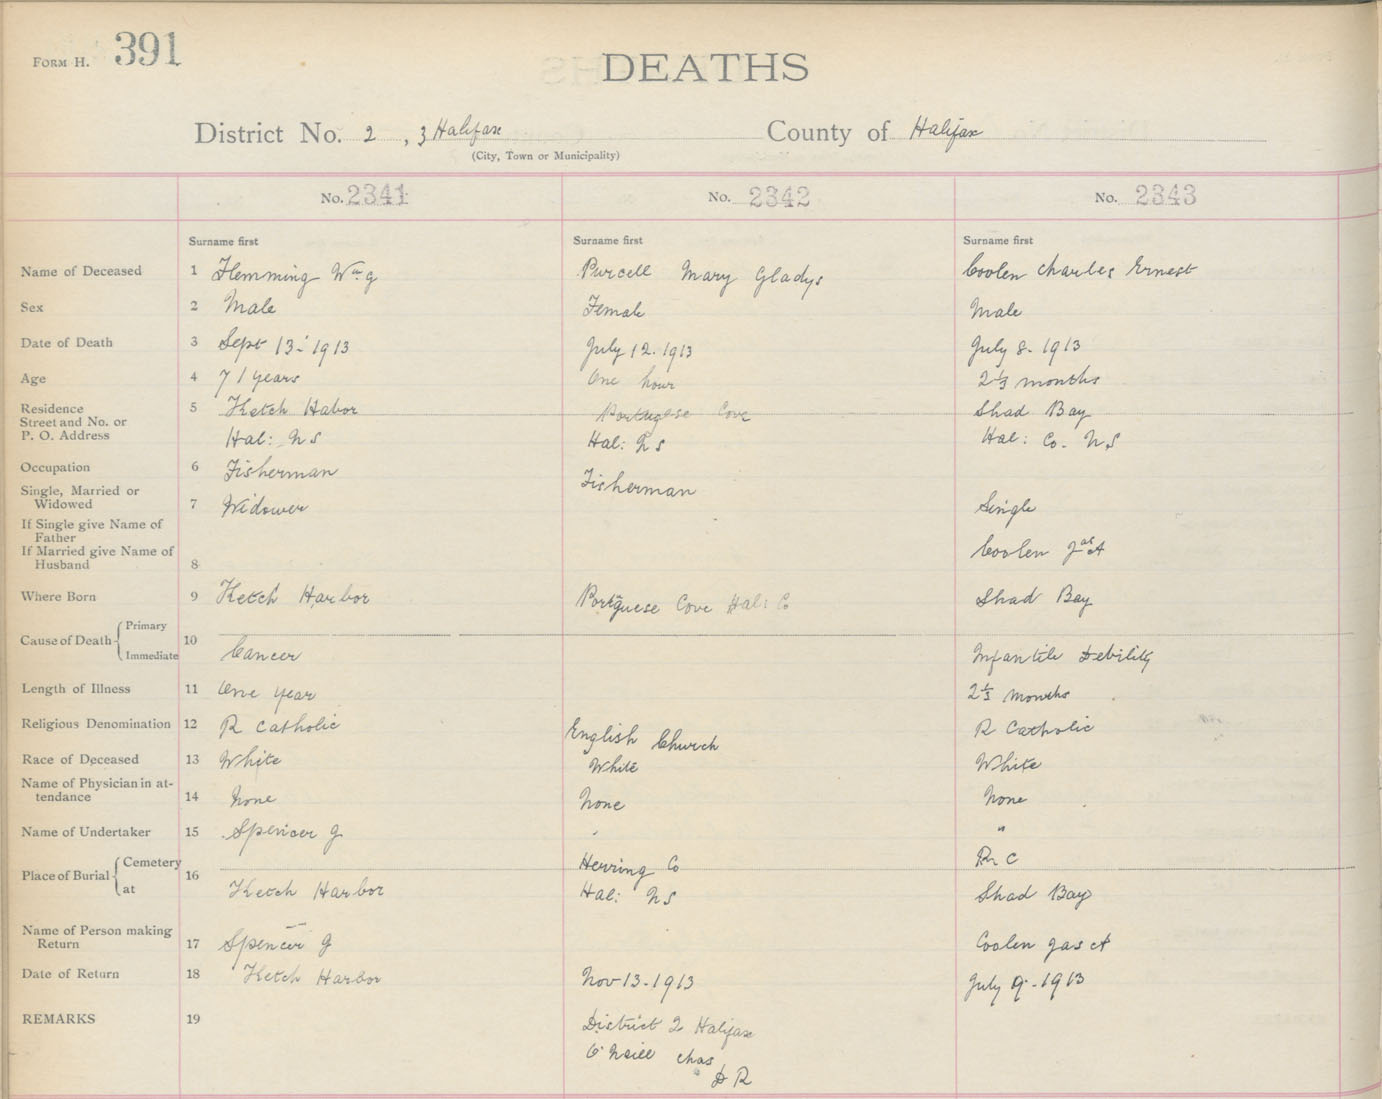 FORM H. 391
DEATHS
District No. 2 , 3 Halifax County of Halifax
(City, Town or Municipality)
No. 2341 No. 2342 No. 2343
Surname first Surname first Surname first
Name of Deceased 1 Flemming Wm G Purcell Mary Gladys Coolen Charles Ernest
Sex 2 Male Female Male
Date of Death 3 Sept 13-1913 July 12.1913 July 8-1913
Age 4 71 years One hour 2 1/3 months
Residence 5 Ketch Habor Portugese Cove Shad Bay
Street and No. or
P. O. Address Hal: NS Hal: NS Hal: Co. NS
Occupation 6 Fisherman Fisherman
Single, Married or
Widowed 7 Widower Single
If Single give Name of
Father
If Married give Name of Coolen Jas A
Husband 8
Where Born 9 Ketch Harbor Portguese Cove Hal: Co Shad Bay
Primary
Cause of Death 10
Immediate Cancer Infantile Debility
Length of Illness 11 One year 2 1/3 months
Religious Denomination 12 R Catholic English Church R Catholic
Race of Deceased 13 White White White
Name of Physician in at-
tendance 14 None None None
Name of Undertaker 15 Spencer J " "
Cemetery Herring Co R C
Place of Burial 16
at Ketch Harbor Hal: NS Shad Bay
Name of Person making
Return 17 Spencer J Coolen Jas A
Date of Return 18 Ketch Harbor Nov 13-1913 July 9-1913
REMARKS 19 District 2 Halifax
O'Neill Chas
D R